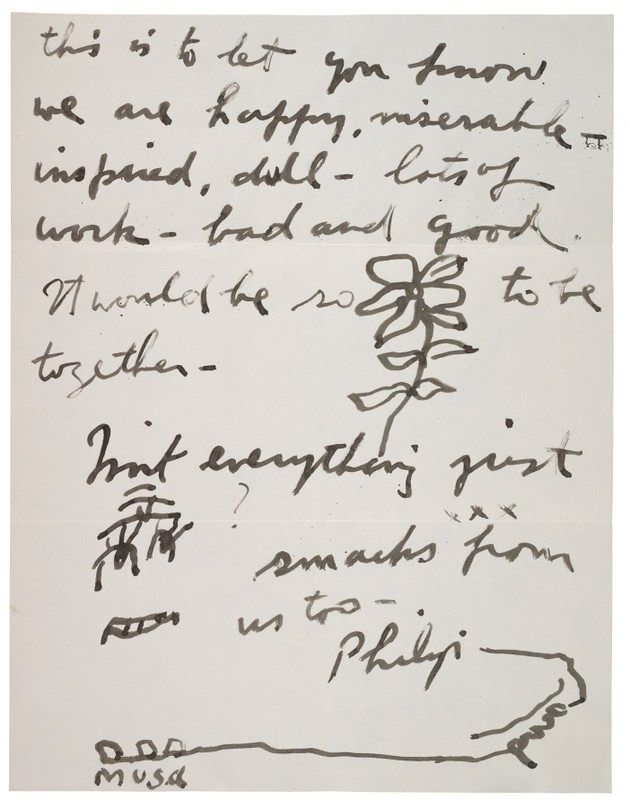 this is to let you know
we are happy, miserable —
inspired, dull – lots of
work – bad and good.
It would be so to be
together –
Isn't everything just
?
x x x
smacks from
us too –
Philip
MUSA